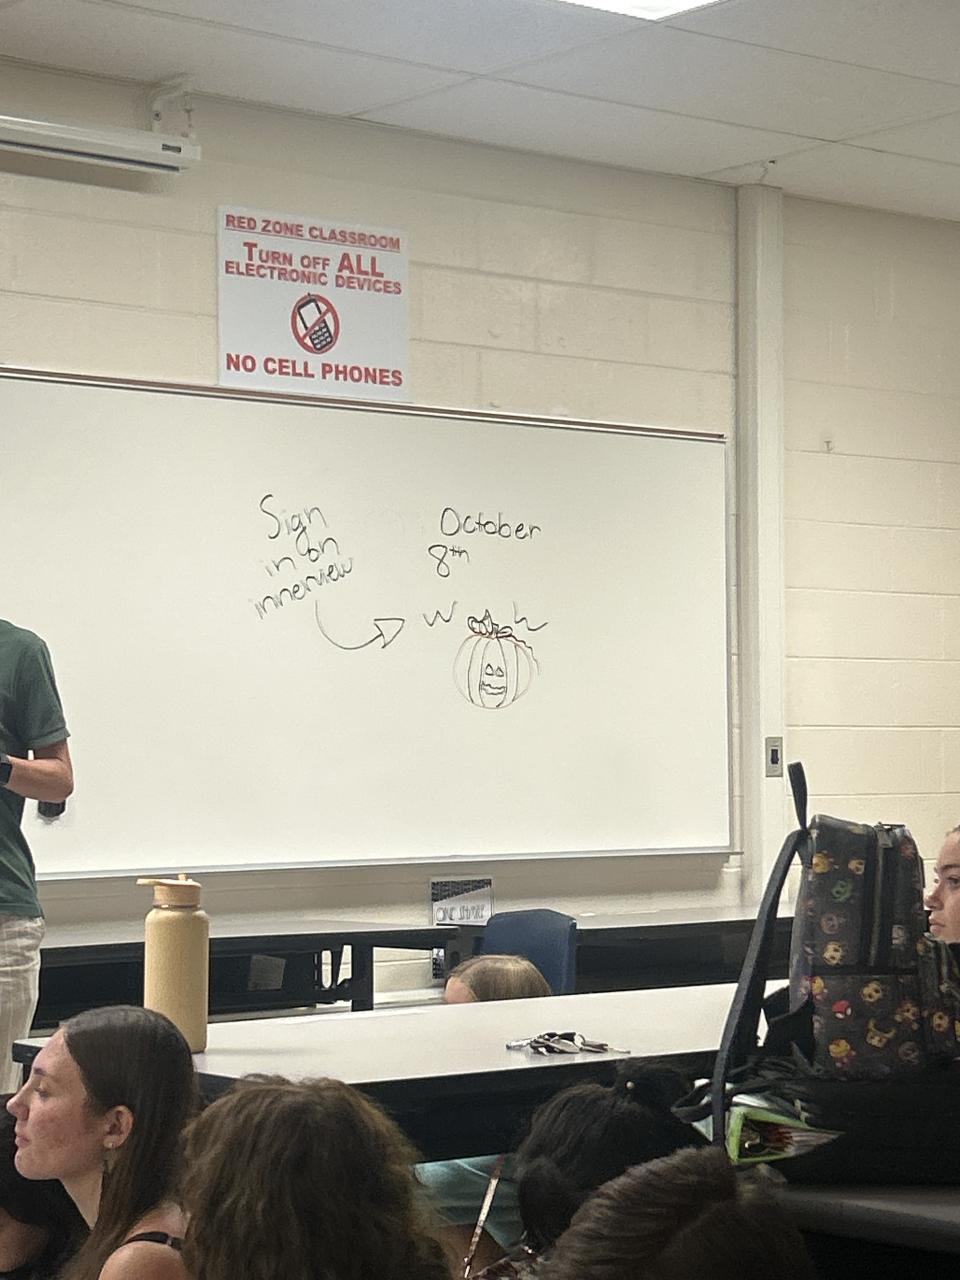 RED ZONE CLASSROOM
TURN OFF ALL
ELECTRONIC DEVICES
NO CELL PHONES
Sign
in on
innerview
October
8th
W h